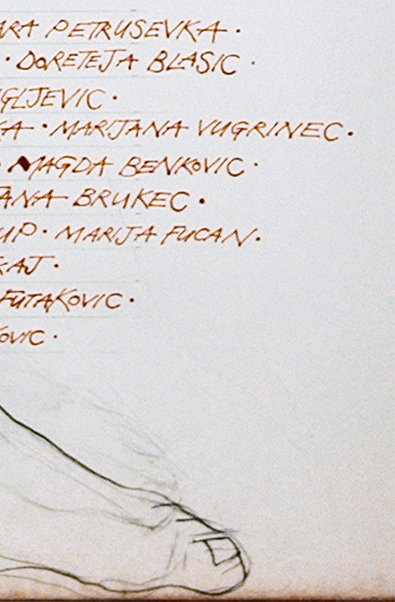 ARA PETRUSEVKA ·
· DORETEJA BLASIC ·
GLJEVIC ·
KA · MARIJANA VUGRINEC ·
MAGDA BENKOVIC ·
JANA BRUKEC ·
UP · MARIJA FUCAN ·
KAJ ·
FUTAKOVIC ·
KOVIC ·